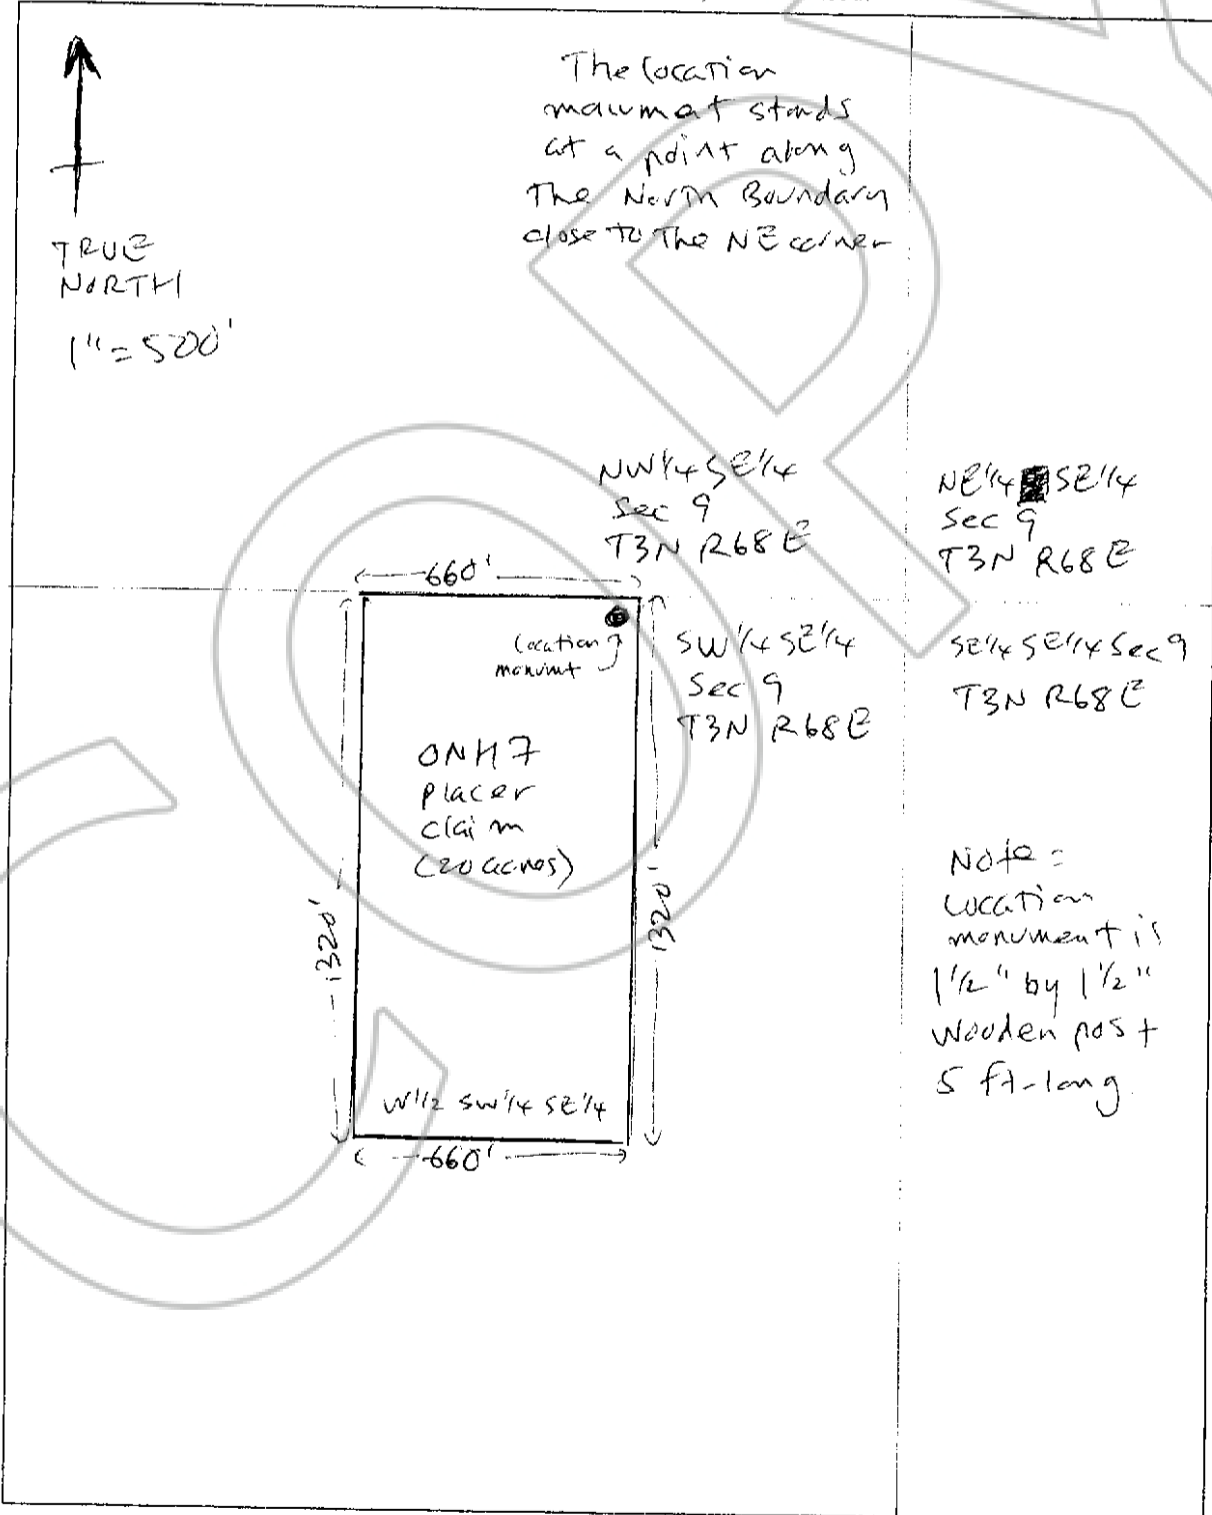 The location
monument stands
at a point along
The North Boundary
close to The NE corner
TRUE
NORTH
1"=500'
NW1/4 SE1/4
Sec 9
T3N R68E
NE1/4 SE1/4
Sec 9
T3N R68E
660'
location
monumt
SW1/4 SE1/4
Sec 9
T3N R68E
SE1/4 SE1/4 Sec 9
T3N R68E
ONH7
placer
claim
(20 acres)
1320'
1320'
Note:
Location
monument is
1 1/2" by 1 1/2"
Wooden post
5 ft-long.
W1/2 SW1/4 SE1/4
660'
COP